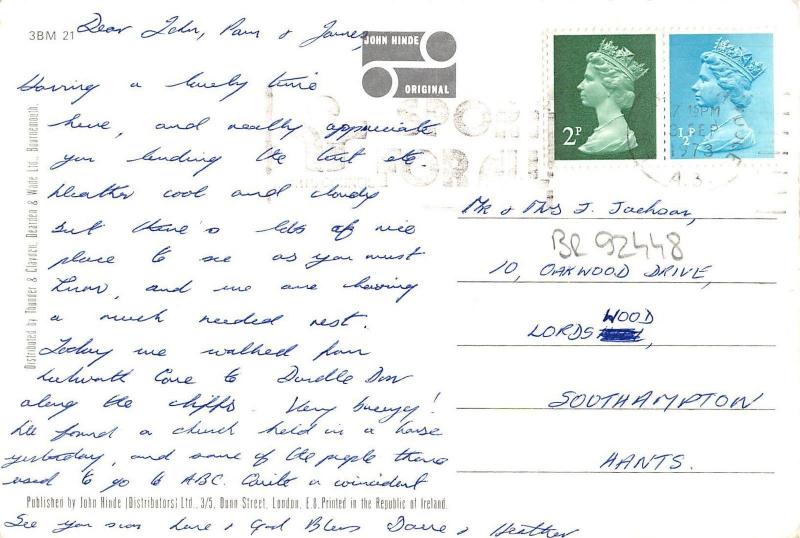 3BM 21
Dear John, Pam & James,
JOHN HINDE
ORIGINAL
Having a lovely time
here, and really appreciate
you lending the tent etc.
Weather cool and cloudy
but there's lots of nice
place to see as you must
know, and we are having
a much needed rest.
Today we walked from
Lulworth Cove to Durdle Dor
along the cliffs. Very breezy!
We found a church held in a house
yesterday, and some of the people there
used to go to ABC. Quite a coincident
See you soon love & God Bless Dave & Heather
Distributed by Thunder & Clayden, Dearden & Wade Ltd., Bournemouth.
Published by John Hinde (Distributors) Ltd., 3/5, Dunn Street, London, E.8. Printed in the Republic of Ireland.
2P
½P
SPORT
FOR ALL
7.15PM
SEP
1973
Mr & Mrs J. Jackson,
BR 92448
10, OAKWOOD DRIVE,
WOOD
LORDS
SOUTHAMPTON
HANTS.